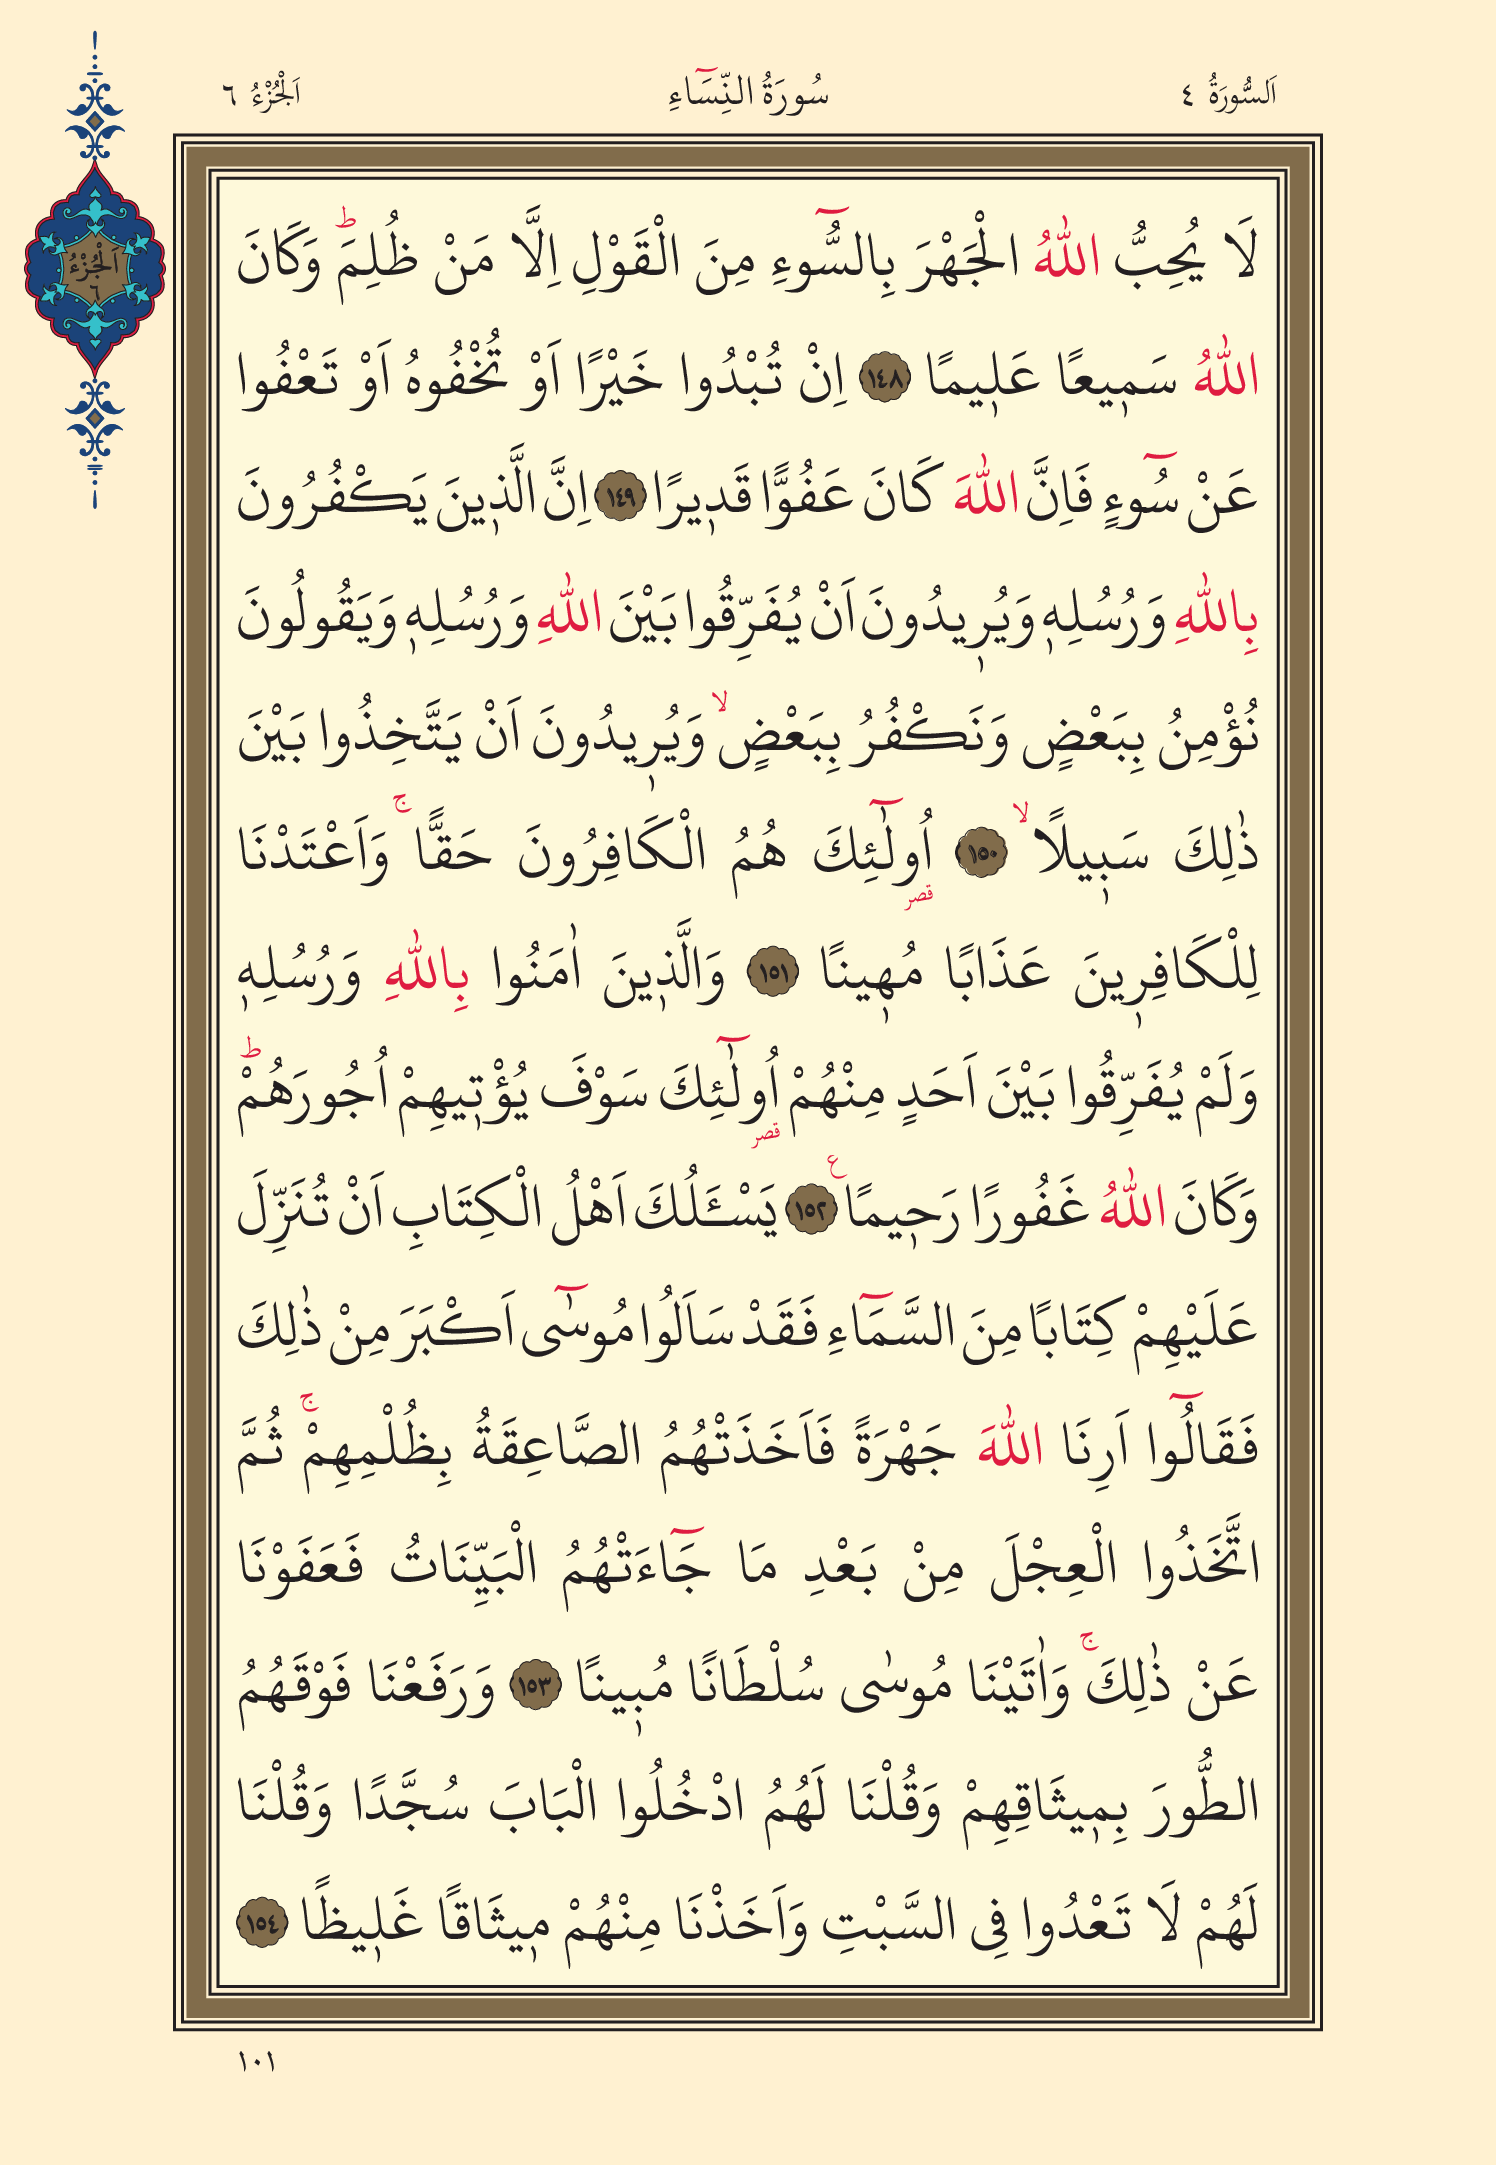 اَلسُّورَةُ ٤ سُورَةُ النِّسَٓاءِ اَلْجُزْءُ ٦
اَلْجُزْءُ
٦
لَا يُحِبُّ اللّٰهُ الْجَهْرَ بِالسُّٓوءِ مِنَ الْقَوْلِ اِلَّا مَنْ ظُلِمَۜ وَكَانَ
اللّٰهُ سَم۪يعًا عَل۪يمًا ﴿١٤٨﴾ اِنْ تُبْدُوا خَيْرًا اَوْ تُخْفُوهُ اَوْ تَعْفُوا
عَنْ سُٓوءٍ فَاِنَّ اللّٰهَ كَانَ عَفُوًّا قَد۪يرًا ﴿١٤٩﴾ اِنَّ الَّذ۪ينَ يَكْفُرُونَ
بِاللّٰهِ وَرُسُلِه۪ وَيُر۪يدُونَ اَنْ يُفَرِّقُوا بَيْنَ اللّٰهِ وَرُسُلِه۪ وَيَقُولُونَ
نُؤْمِنُ بِبَعْضٍ وَنَكْفُرُ بِبَعْضٍۙ وَيُر۪يدُونَ اَنْ يَتَّخِذُوا بَيْنَ
ذٰلِكَ سَب۪يلًاۙ ﴿١٥٠﴾ اُو۬لٰٓئِكَ هُمُ الْكَافِرُونَ حَقًّاۚ وَاَعْتَدْنَا
قصر
لِلْكَافِر۪ينَ عَذَابًا مُه۪ينًا ﴿١٥١﴾ وَالَّذ۪ينَ اٰمَنُوا بِاللّٰهِ وَرُسُلِه۪
وَلَمْ يُفَرِّقُوا بَيْنَ اَحَدٍ مِنْهُمْ اُو۬لٰٓئِكَ سَوْفَ يُؤْت۪يهِمْ اُجُورَهُمْۜ
قصر
وَكَانَ اللّٰهُ غَفُورًا رَح۪يمًا ع ﴿١٥٢﴾ يَسْـَٔلُكَ اَهْلُ الْكِتَابِ اَنْ تُنَزِّلَ
عَلَيْهِمْ كِتَابًا مِنَ السَّمَٓاءِ فَقَدْ سَاَلُوا مُوسٰٓى اَكْبَرَ مِنْ ذٰلِكَ
فَقَالُٓوا اَرِنَا اللّٰهَ جَهْرَةً فَاَخَذَتْهُمُ الصَّاعِقَةُ بِظُلْمِهِمْۚ ثُمَّ
اتَّخَذُوا الْعِجْلَ مِنْ بَعْدِ مَا جَٓاءَتْهُمُ الْبَيِّنَاتُ فَعَفَوْنَا
عَنْ ذٰلِكَۚ وَاٰتَيْنَا مُوسٰى سُلْطَانًا مُب۪ينًا ﴿١٥٣﴾ وَرَفَعْنَا فَوْقَهُمُ
الطُّورَ بِم۪يثَاقِهِمْ وَقُلْنَا لَهُمُ ادْخُلُوا الْبَابَ سُجَّدًا وَقُلْنَا
لَهُمْ لَا تَعْدُوا فِى السَّبْتِ وَاَخَذْنَا مِنْهُمْ م۪يثَاقًا غَل۪يظًا ﴿١٥٤﴾
١٠١